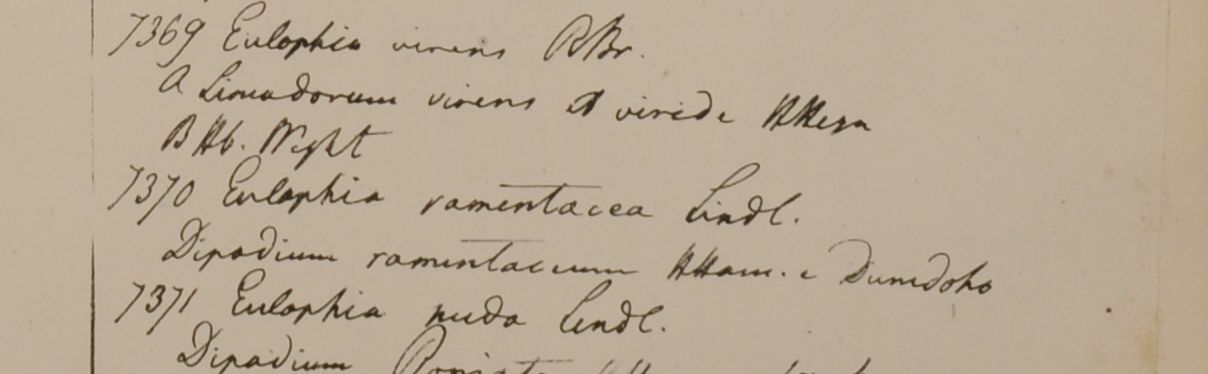 7369 Eulophia virens RBr.
A Limadorum virens et viride HHeyn
B Hb. Wight
7370 Eulophia ramentacea Lindl.
Dipodium ramentaceum HHam. e Dumdoho
7371 Eulophia nuda Lindl.
Dipodium